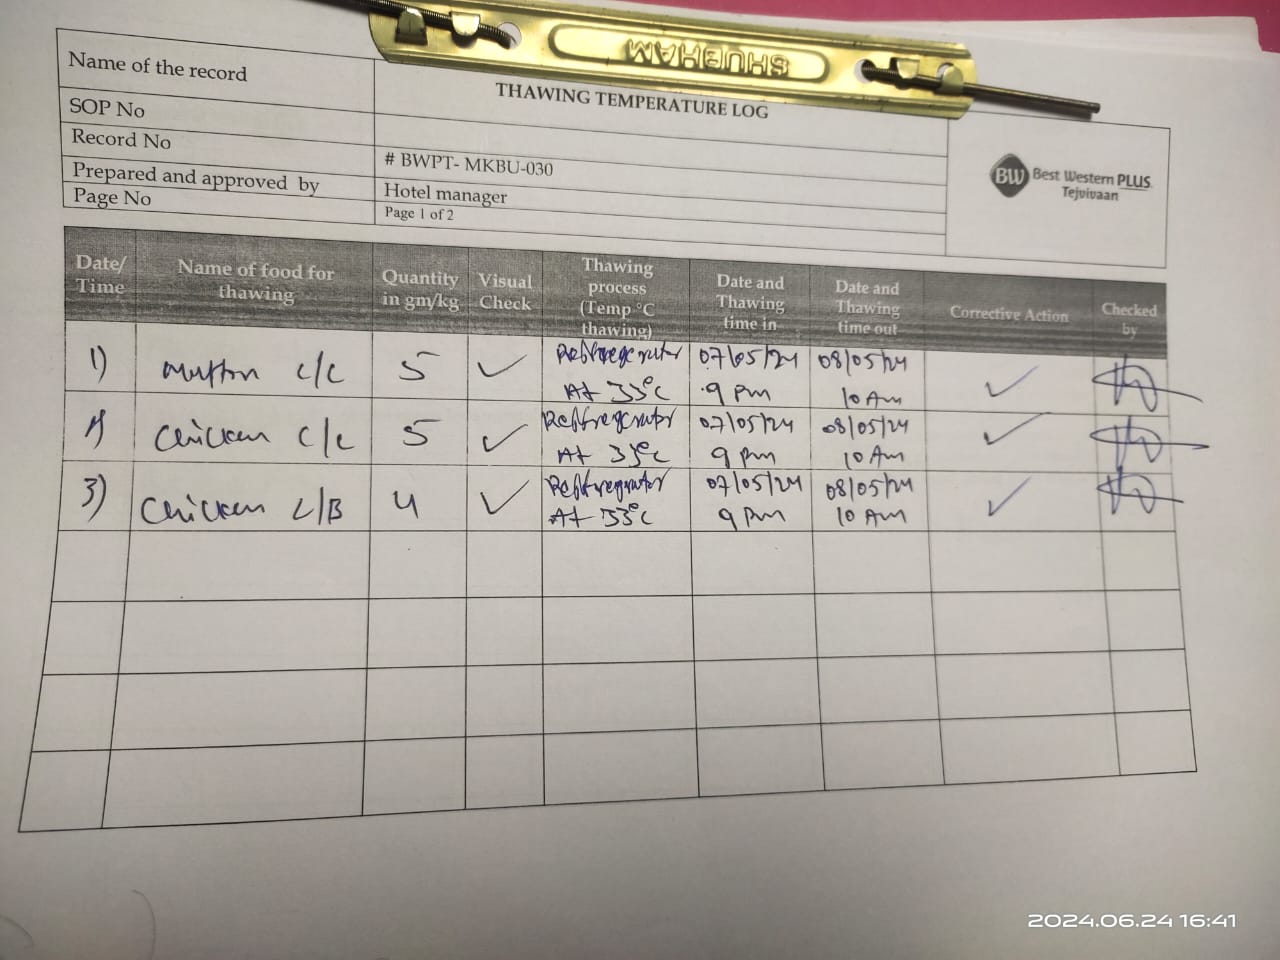 SHUBHAM
Name of the record
THAWING TEMPERATURE LOG
SOP No
Record No
# BWPT- MKBU-030
Prepared and approved by
Hotel manager
Page No
Page 1 of 2
BW Best Western PLUS
Tejvivaan
Date/ Time
Name of food for thawing
Quantity in gm/kg
Visual Check
Thawing process (Temp °C thawing)
Date and Thawing time in
Date and Thawing time out
Corrective Action
Checked by
1) mutton c/c 5 ✓ At 33°c 07/05/24 9 pm 08/05/24 10 Am ✓
chicken c/c 5 ✓ At 33°c 07/05/24 9 pm 08/05/24 10 Am ✓
3) chicken L/B 4 ✓ At 33°c 07/05/24 9 pm 08/05/24 10 Am ✓
2024.06.24 16:41